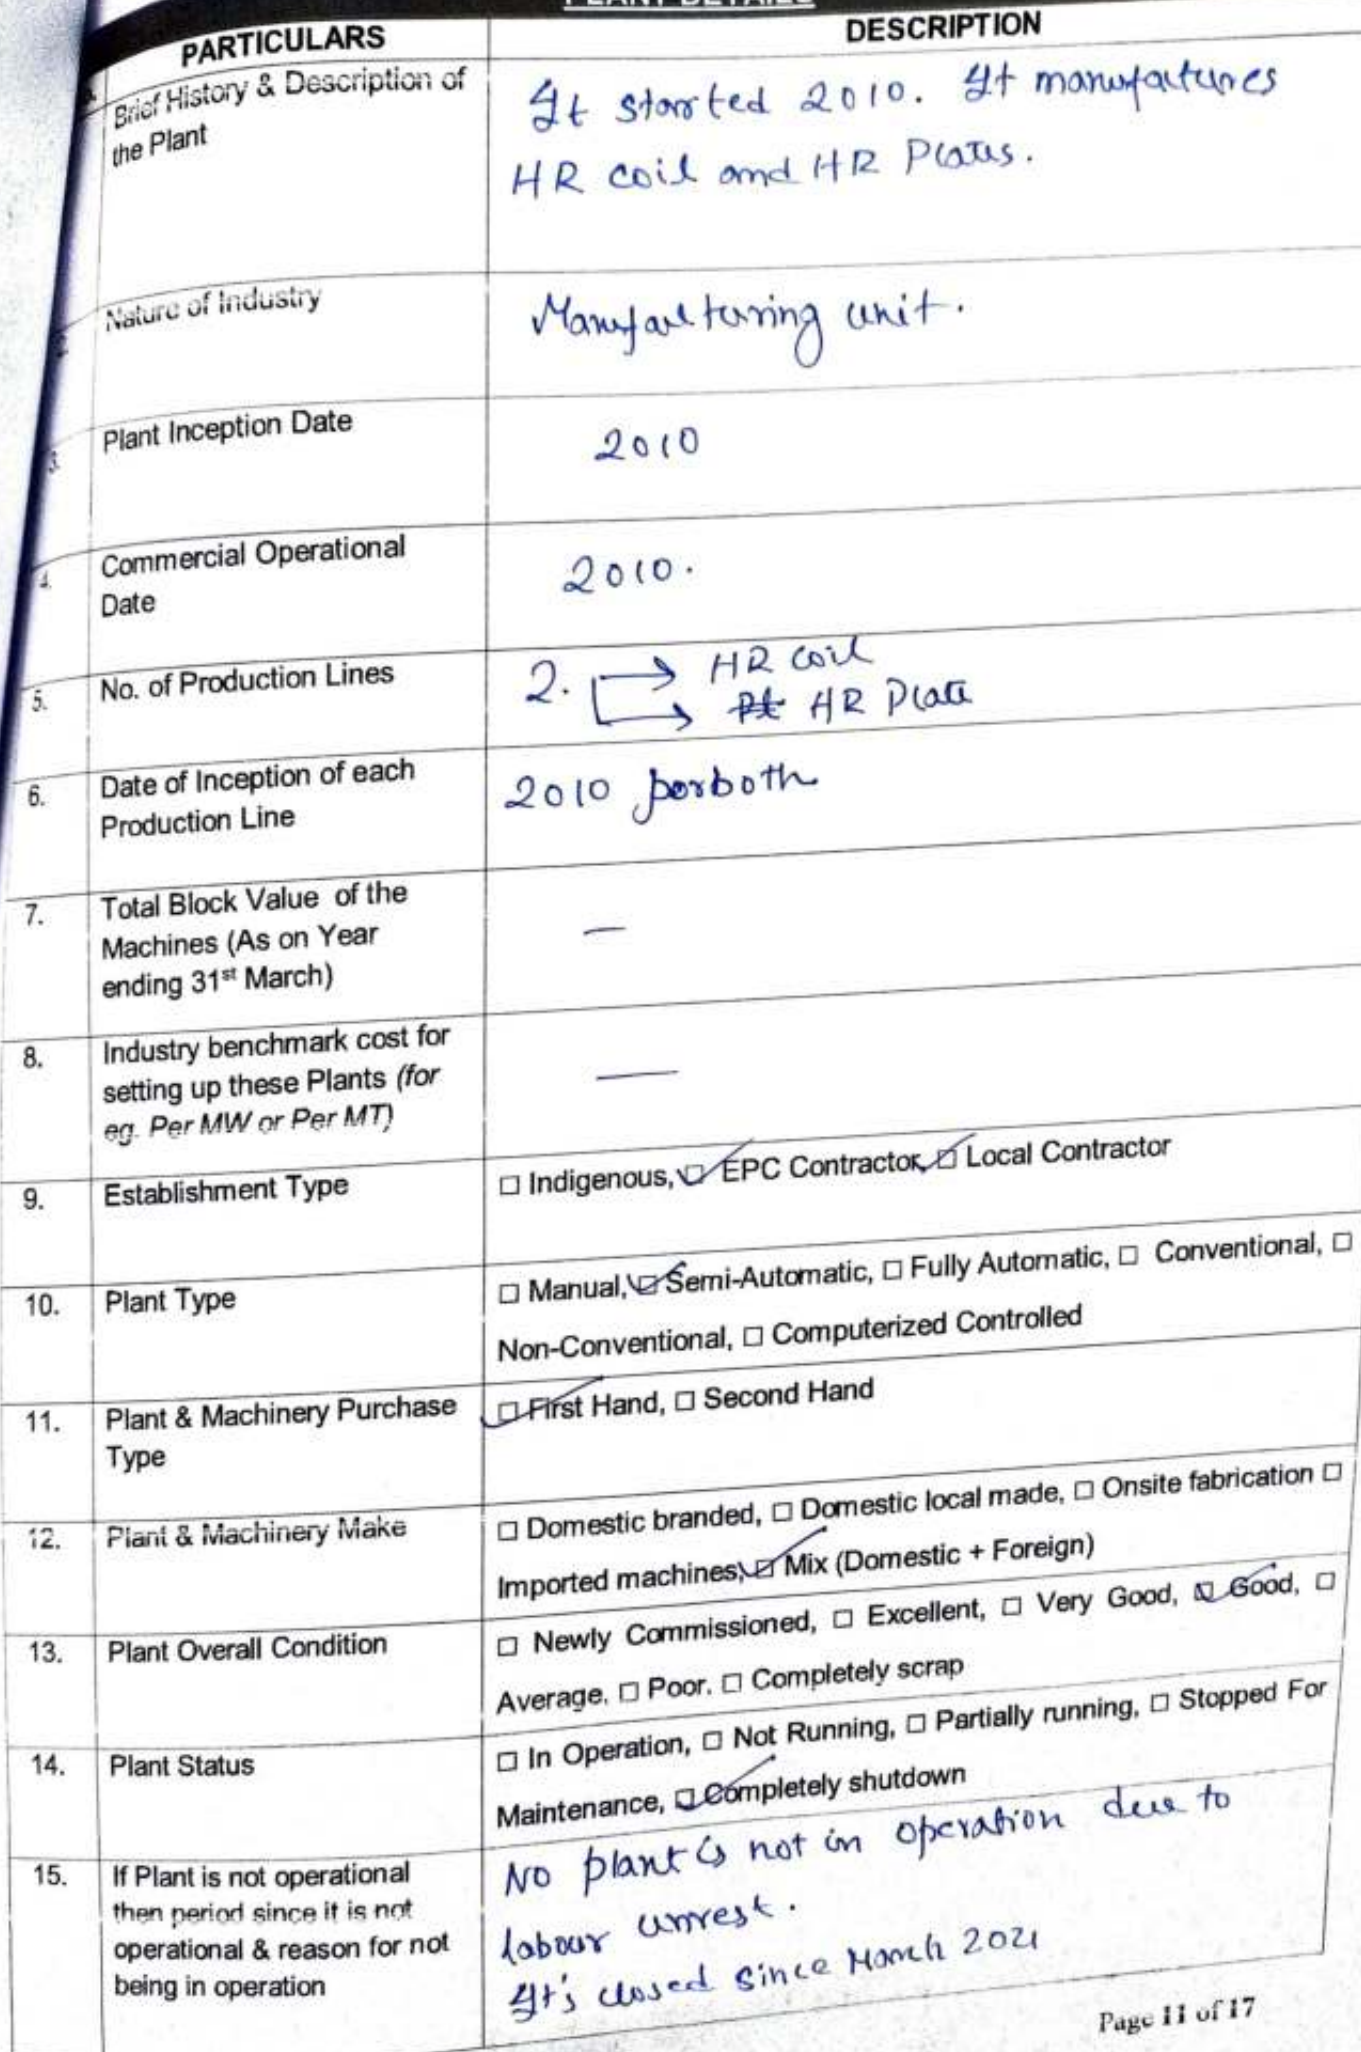 PLANT DETAILS
PARTICULARS
DESCRIPTION
Brief History & Description of
the Plant
It started 2010. It manufactures
HR coil and HR Plates.
Nature of Industry
Manufacturing unit.
3.
Plant Inception Date
2010
4.
Commercial Operational
Date
2010.
5.
No. of Production Lines
2. → HR coil
→ HR Plate
6.
Date of Inception of each
Production Line
2010 for both
7.
Total Block Value of the
Machines (As on Year
ending 31st March)
—
8.
Industry benchmark cost for
setting up these Plants (for
eg. Per MW or Per MT)
—
9.
Establishment Type
☐ Indigenous, ☑ EPC Contractor, ☑ Local Contractor
10.
Plant Type
☐ Manual, ☑ Semi-Automatic, ☐ Fully Automatic, ☐ Conventional, ☐
Non-Conventional, ☐ Computerized Controlled
11.
Plant & Machinery Purchase
Type
☑ First Hand, ☐ Second Hand
12.
Plant & Machinery Make
☐ Domestic branded, ☐ Domestic local made, ☐ Onsite fabrication ☐
Imported machines, ☑ Mix (Domestic + Foreign)
13.
Plant Overall Condition
☐ Newly Commissioned, ☐ Excellent, ☐ Very Good, ☑ Good, ☐
Average. ☐ Poor. ☐ Completely scrap
14.
Plant Status
☐ In Operation, ☐ Not Running, ☐ Partially running, ☐ Stopped For
Maintenance, ☑ Completely shutdown
15.
If Plant is not operational
then period since it is not
operational & reason for not
being in operation
No plant is not in operation due to
labour unrest.
It's closed since March 2021
Page 11 of 17